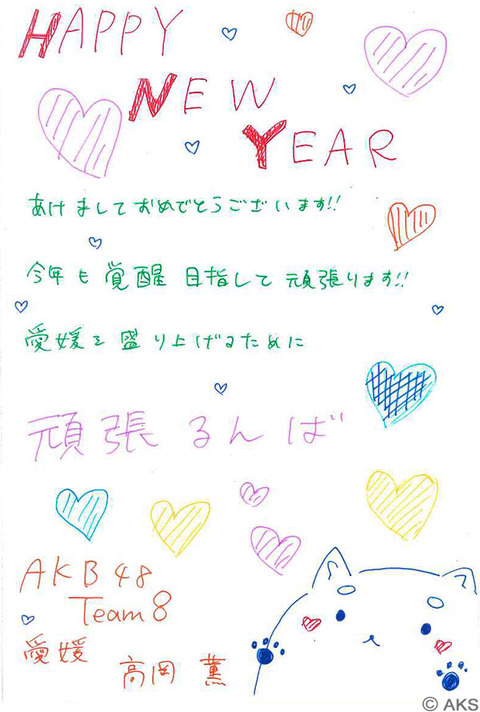 HAPPY
NEW
YEAR
あけましておめでとうございます!!
今年も覚醒目指して頑張ります!!
愛媛を盛り上げるために
頑張るんば
AKB48
Team8
愛媛
高岡 薫
© AKS